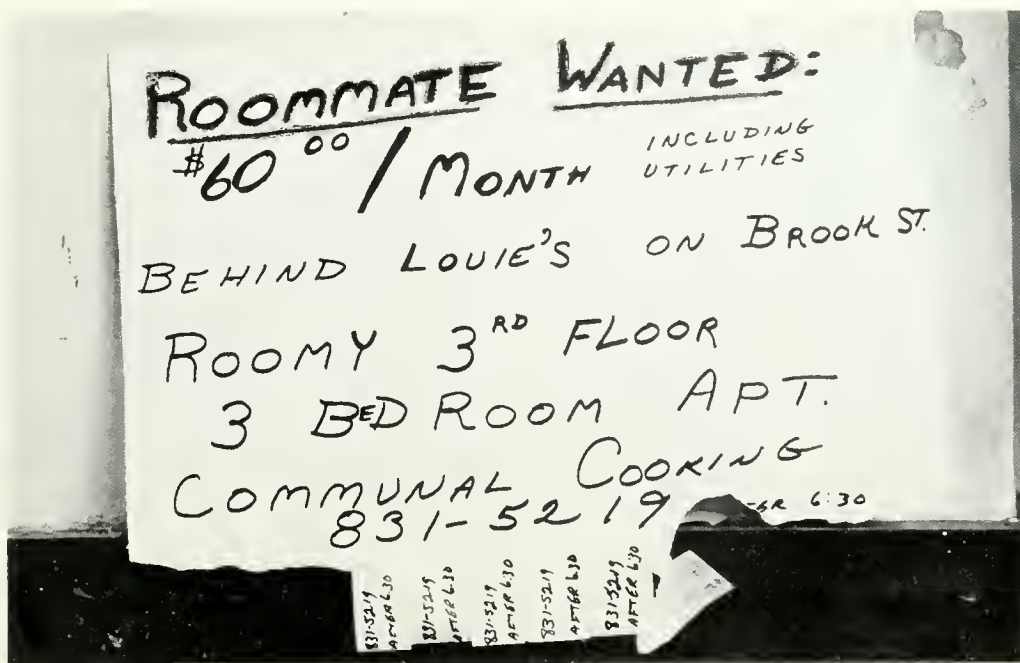 ROOMMATE WANTED:
$60 00 / MONTH INCLUDING
UTILITIES
BEHIND LOUIE'S ON BROOK ST.
ROOMY 3RD FLOOR
3 BEDROOM APT.
COMMUNAL COOKING
831-5219 6:30
831-5219
AFTER 6:30
831-5219
AFTER 6:30
831-5219
AFTER 6:30
831-5219
AFTER 630
831-5219
AFTER 630